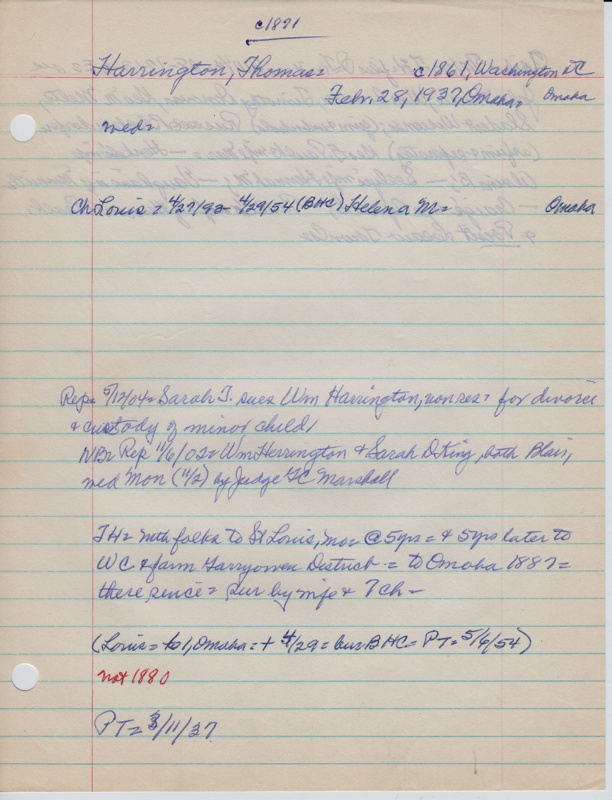 c1871
Harrington, Thomas = c1861, Washington DC
Feb. 28, 1937, Omaha = Omaha
wed =
Ch Louis = 4/27/92 - 4/29/54 (BHC) Helena M = Omaha
Rep = 5/12/04 = Sarah J. sues Wm Harrington, nonres = for divorce
& custody of minor child/
NBr Rep 11/6/02 = Wm Herrington & Sarah D King, both Blair,
wed Mon (11/2) by Judge IC Marshall
TH = with folks to St Louis, mo = @ 5yrs = & 5yrs later to
WC & farm Garryowen District = to Omaha 1887 =
there since = sur by wife & 7 ch -
(Louis = to 1, Omaha = + 4/29 = bur BHC = PT = 5/6/54)
not 1880
PT = 3/11/37